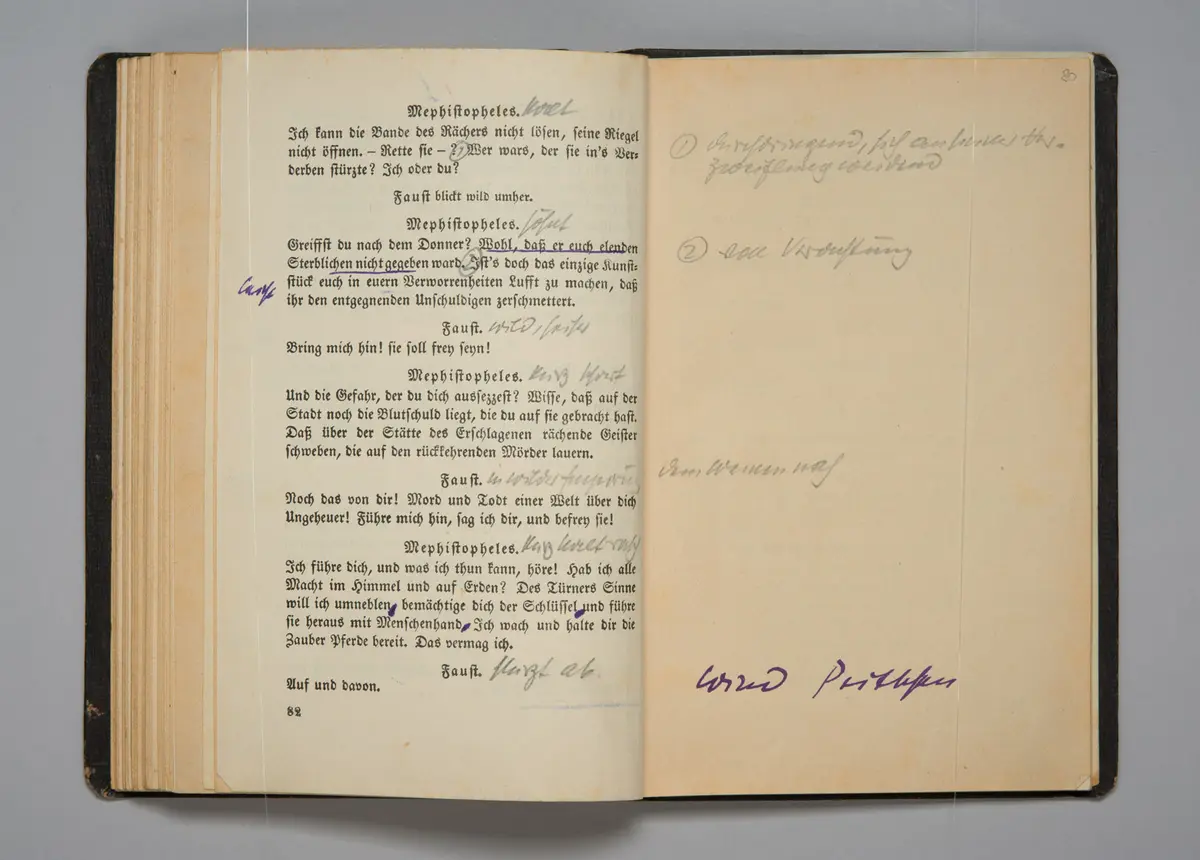 Mephistopheles. kalt
Ich kann die Bande des Rächers nicht lösen, seine Riegel
nicht öffnen. — Rette sie — ? 1 Wer wars, der sie in's Ver-
derben stürzte? Ich oder du?
Faust blickt wild umher.
Mephistopheles. höhnt
Greiffst du nach dem Donner? Wohl, daß er euch elenden
Sterblichen nicht gegeben ward. 2 Ist's doch das einzige Kunst-
stück euch in euern Verworrenheiten Lufft zu machen, daß
ihr den entgegnenden Unschuldigen zerschmettert.
Faust. wild,
Bring mich hin! sie soll frey seyn!
Mephistopheles. kurz
Und die Gefahr, der du dich aussezzest? Wisse, daß auf der
Stadt noch die Blutschuld liegt, die du auf sie gebracht hast.
Daß über der Stätte des Erschlagenen rächende Geister
schweben, die auf den rückkehrenden Mörder lauern.
Faust. in wilder
Noch das von dir! Mord und Todt einer Welt über dich
Ungeheuer! Führe mich hin, sag ich dir, und befrey sie!
Mephistopheles. kurz kalt
Ich führe dich, und was ich thun kann, höre! Hab ich alle
Macht im Himmel und auf Erden? Des Türners Sinne
will ich umneblen, bemächtige dich der Schlüssel und führe
sie heraus mit Menschenhand. Ich wach und halte dir die
Zauber Pferde bereit. Das vermag ich.
Faust. stürzt ab.
Auf und davon.
82
80
① durchdringend, sich an seiner Ver-
zweiflung weidend
② voll Verachtung